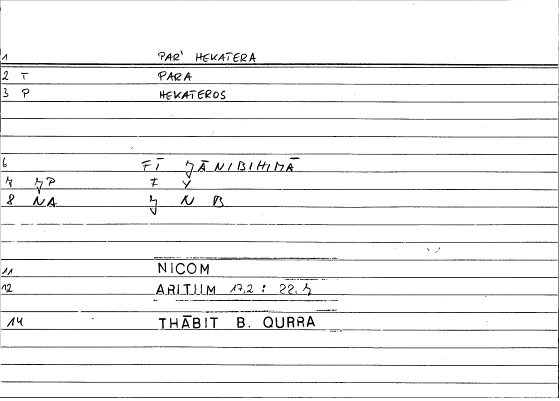 1 PAR' HEKATERA
2 T PARA
3 P HEKATEROS
6 FĪ 7ĀNIBIHIMĀ
7 7P F Y
8 NA 7 N B
11 NICOM
12 ARITUM 17,2 : 22,7
14 THĀBIT B. QURRA